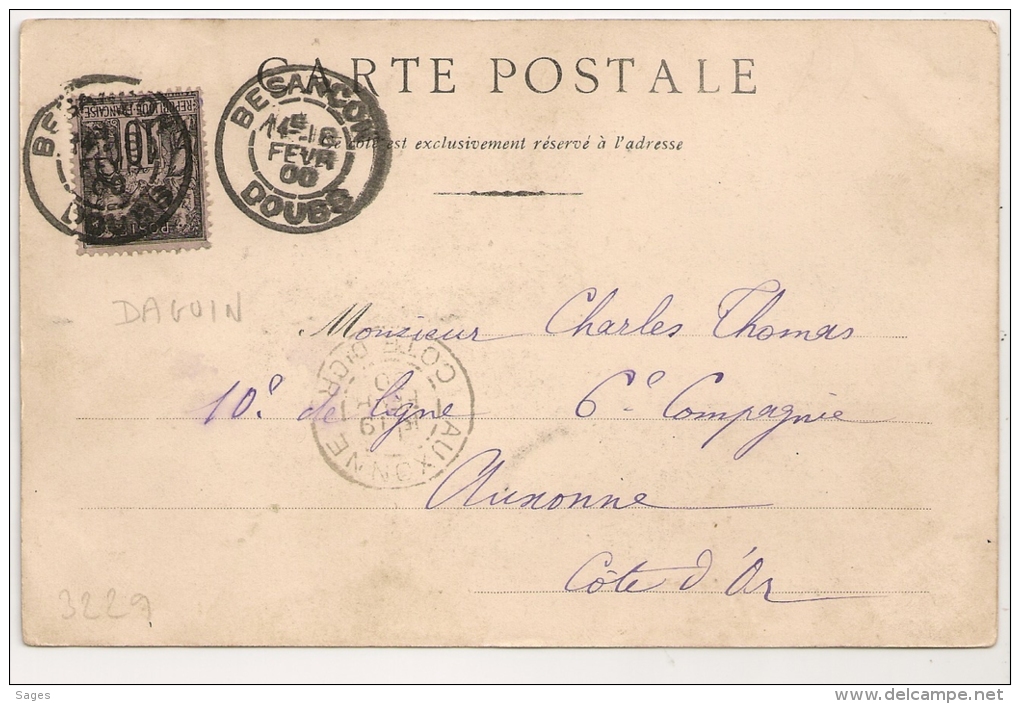 CARTE POSTALE
Ce côté est exclusivement réservé à l'adresse
BESANÇON
14E 18
FEVR
00
DOUBS
REPUBLIQUE FRANÇAISE
10
POSTE
DAGUIN
Monsieur Charles Thomas
10e de ligne 6e Compagnie
Auxonne
Côte d'Or
AUXONNE
COTE D'OR
19
3229
Sages
www.delcampe.net